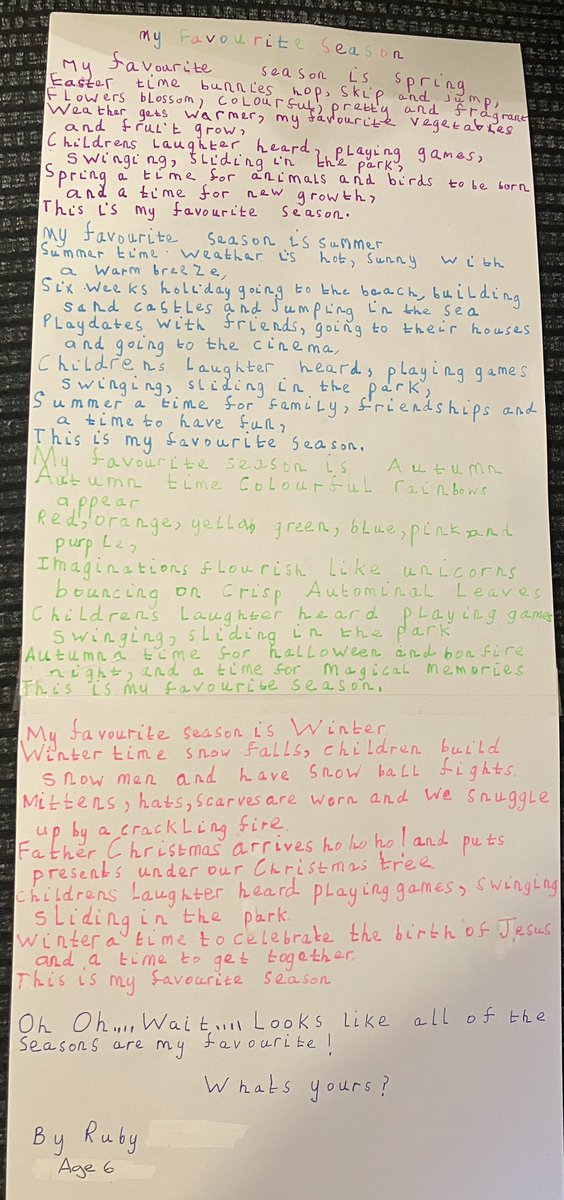 My Favourite Season
My favourite season is spring
Easter time bunnies hop, skip and jump,
Flowers blossom, colourful, pretty and fragrant
Weather gets warmer, my favourite vegetables
and fruit grow,
Childrens laughter heard, playing games,
swinging, sliding in the park,
Spring a time for animals and birds to be born
and a time for new growth,
This is my favourite season.
My favourite season is summer
Summer time weather is hot, sunny with
a warm breeze,
Six weeks holiday going to the beach, building
sand castles and Jumping in the sea
Playdates with friends, going to their houses
and going to the cinema,
Childrens laughter heard, playing games
swinging, sliding in the park,
Summer a time for family, friendships and
a time to have fun,
This is my favourite season.
My favourite season is Autumn
Autumn time colourful rainbows
appear
Red, orange, yellow, green, blue, pink and
purple,
Imaginations flourish like unicorns
bouncing on crisp Autominal Leaves
Childrens laughter heard playing games
swinging, sliding in the park
Autumn a time for halloween and bonfire
night, and a time for magical memories
This is my favourite season.
My favourite season is Winter.
Winter time snow falls, children build
snow men and have snow ball fights.
Mittens, hats, scarves are worn and we snuggle
up by a crackling fire.
Father Christmas arrives ho ho ho! and puts
presents under our Christmas tree.
childrens laughter heard playing games, swinging
sliding in the park.
Winter a time to celebrate the birth of Jesus
and a time to get together.
This is my favourite season
Oh Oh,,,,Wait,,,, Looks like all of the
seasons are my favourite!
Whats yours?
By Ruby
Age 6